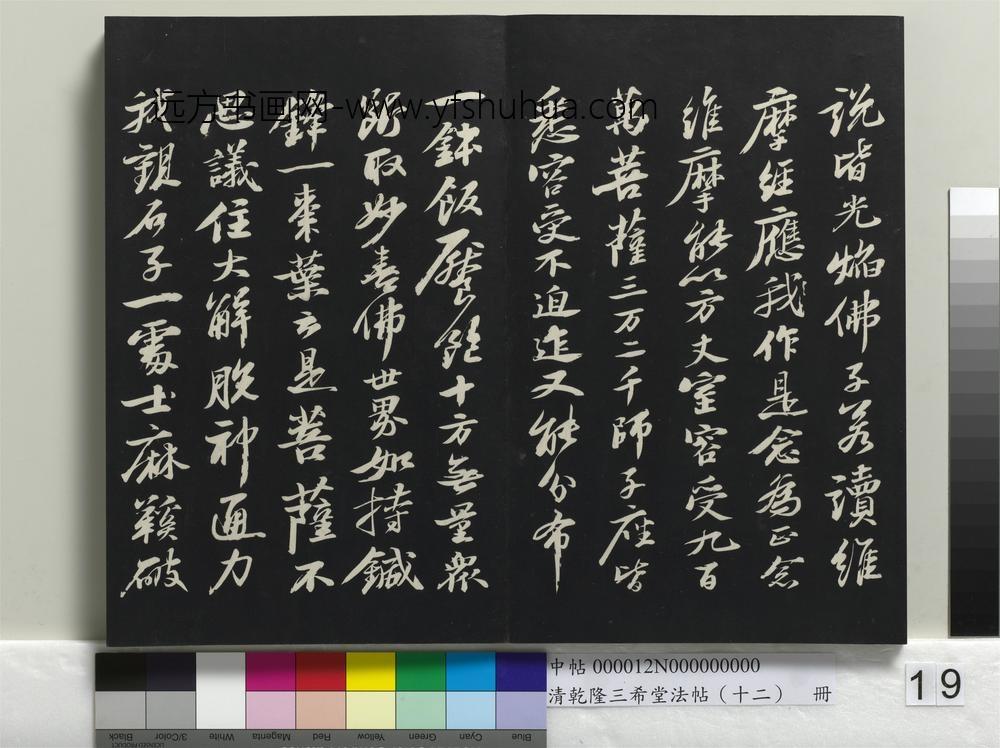 说皆光焰佛子若讀維
摩經應我作是念為正念
維摩能以方丈室容受九百
萬菩薩三万二千師子座皆
悉容受不迫迮又能分布
一鉢飯饜飽十方無量衆
斷取妙喜佛世界如持鍼
鋒一棗葉云是菩薩不
思議住大解脫神通力
我觀石子一處士麻鞋破
远方书画网-www.yfshuhua.com
中帖 000012N000000000
清乾隆三希堂法帖（十二） 冊
19
Black
3/Color
White
Magenta
Red
Yellow
Green
Cyan
Blue